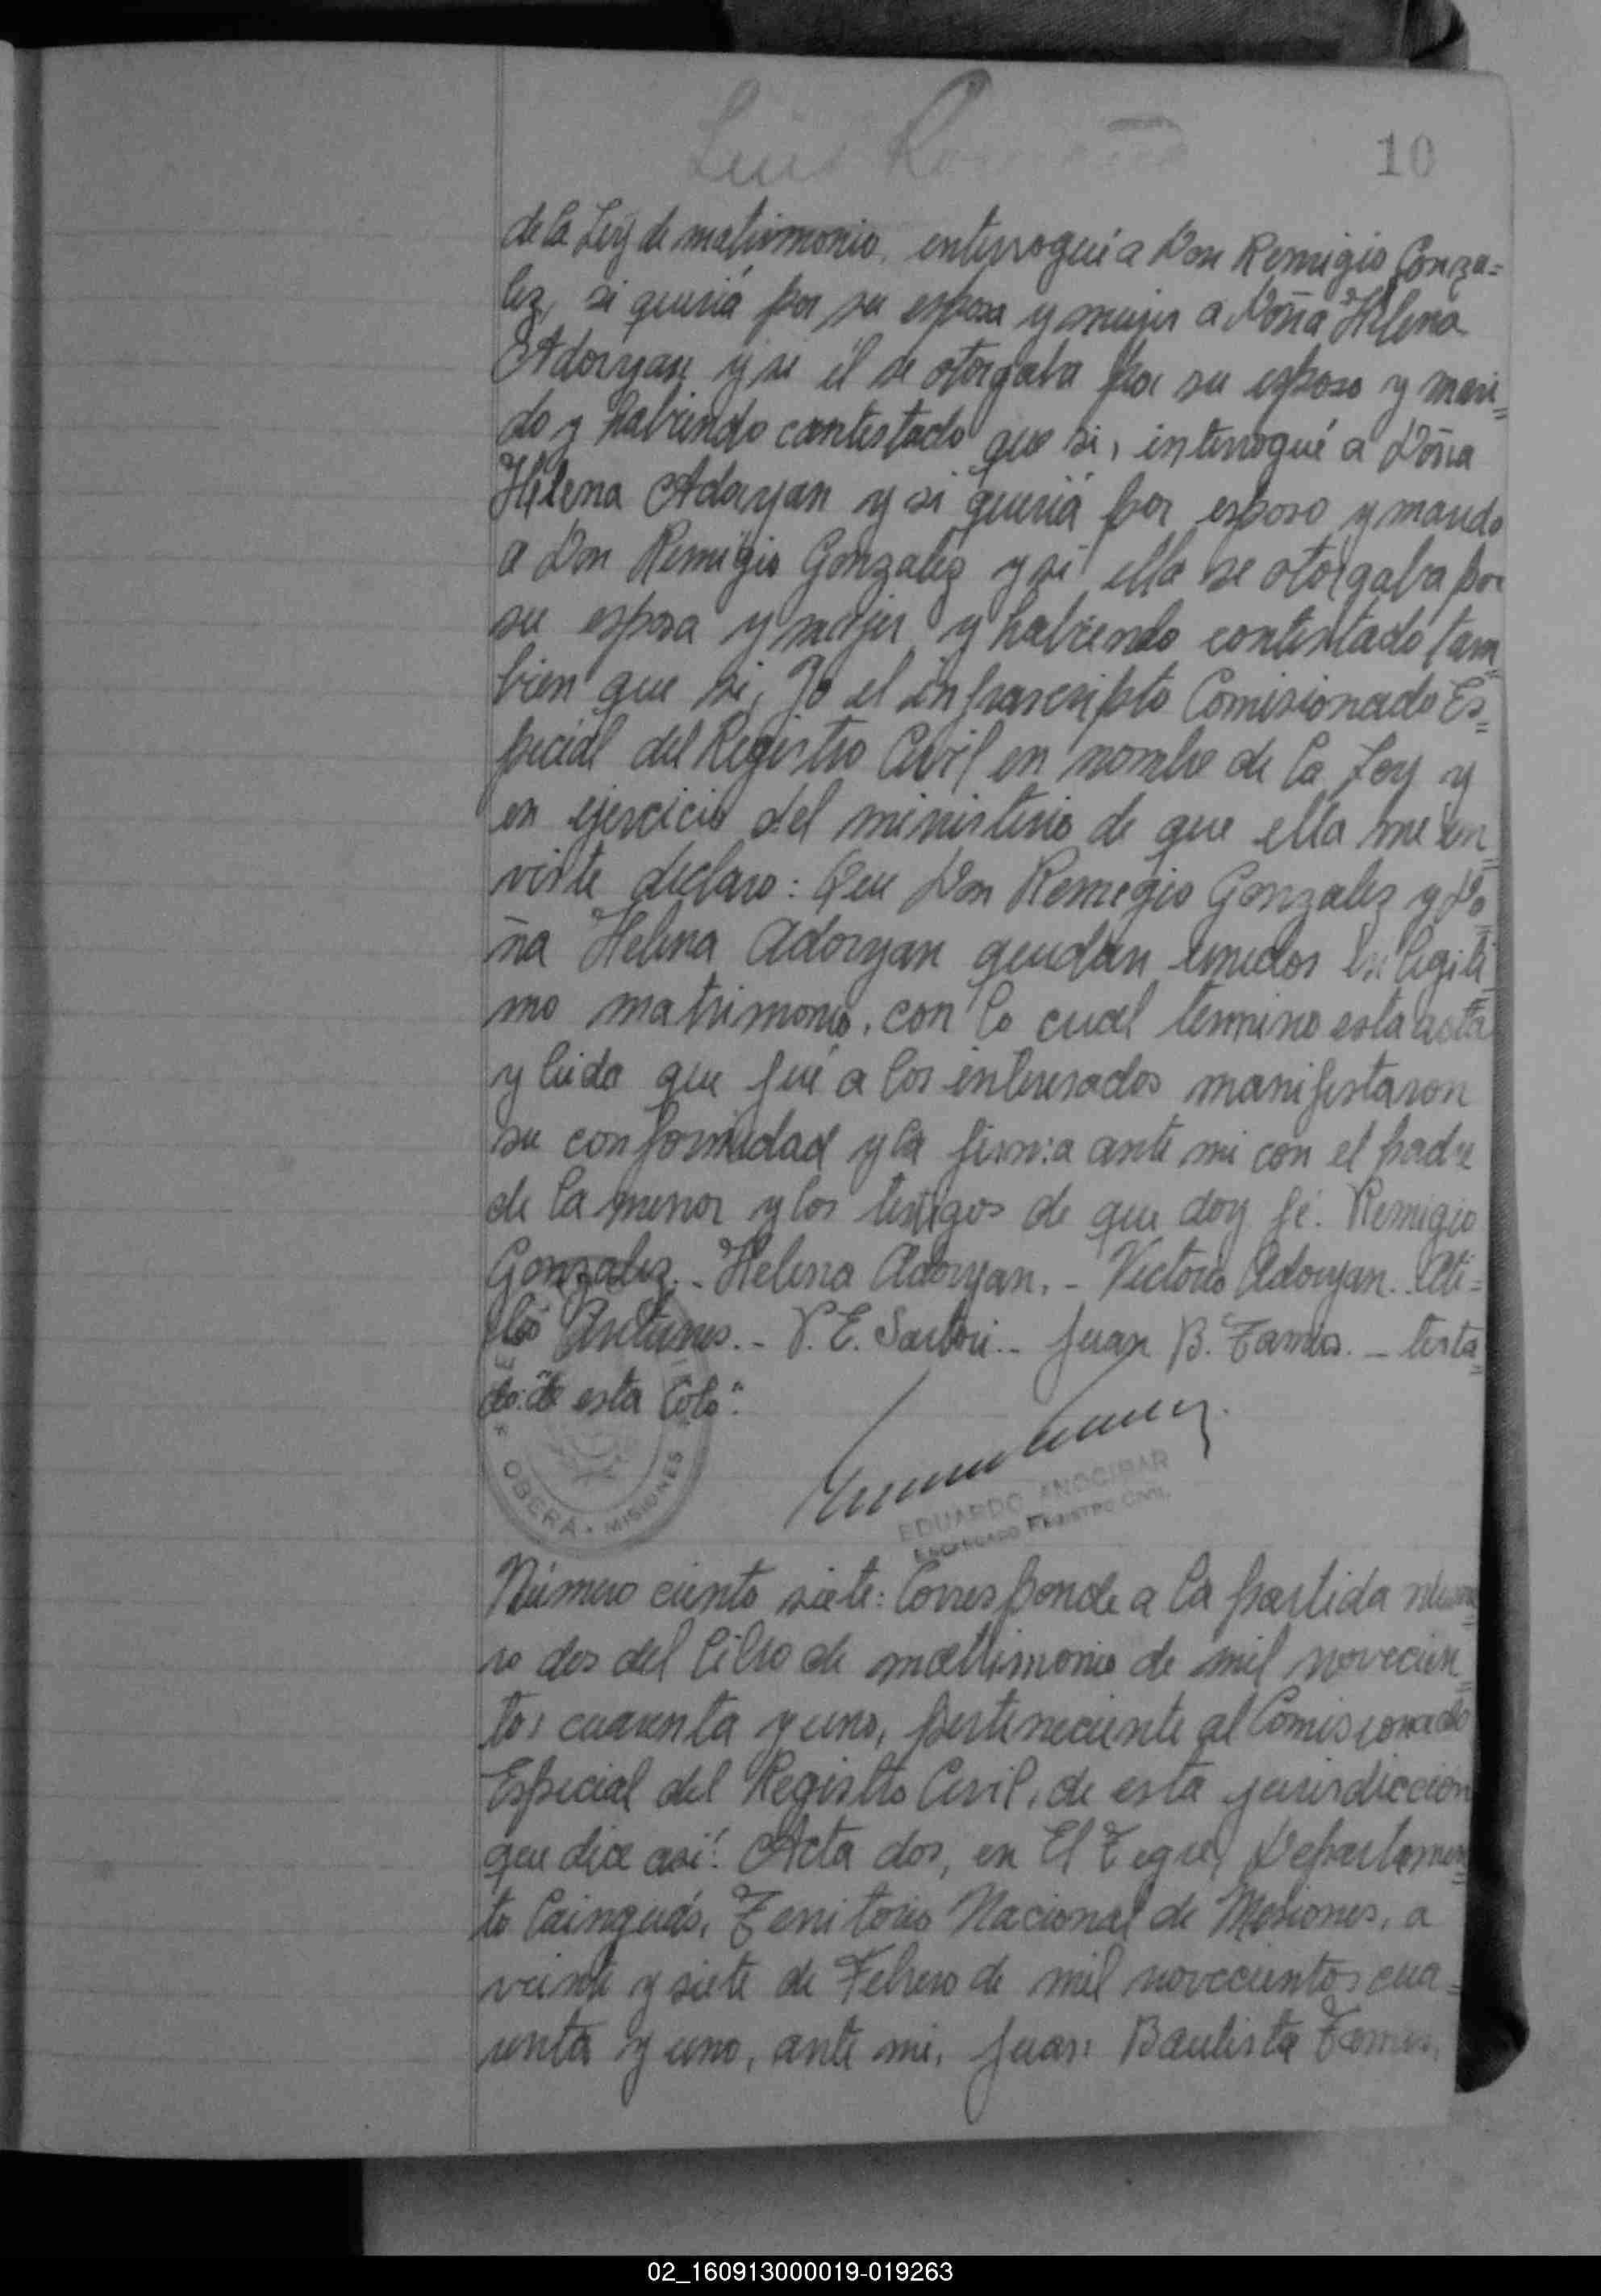 Luis
10
de la Ley de matrimonio, interrogué a Don Remigio Gonza=
lez, si queriá por su esposa y mujer a Doña Helena
Adoryan y si él se otorgaba por su esposo y mari=
do y habiendo contestado que si, interrogué a Doña
Helena Adoryan y si queriá por esposo y marido
a Don Remigio Gonzalez y si ella se otorgaba por
su esposa y mujer y habiendo contestado tam=
bien que si, Yo el infrascripto Comisionado Es=
pecial del Registro Civil en nombre de la Ley y
en ejercicio del ministerio de que ella me in=
viste declaro: Que Don Remigio Gonzalez y Do=
ña Helena Adoryan quedan unidos en legiti=
mo matrimonio, con lo cual termino esta acta
y leida que fué a los interesados manifestaron
su conformidad y la firma ante mi con el padre
de la menor y los testigos de que doy fé. Remigio
Gonzalez.- Helena Adoryan.- Victorio Adoryan.
Antunes.- V. E. Sartori.- Juan B. - testa=
do: "de esta Colo".
OBERÁ · MISIONES
EDUARDO ANOCIBAR
ENCARGADO REGISTRO CIVIL
Número ciento siete: Corresponde a la partida núme=
ro dos del libro de matrimonio de mil novecien=
tos cuarenta y uno, perteneciente al Comisionado
Especial del Registro Civil, de esta jurisdiccion
que dice asi: Acta dos, en El Tigre, Departamen=
to Cainguás, Territorio Nacional de Misiones, a
veinte y siete de Febrero de mil novecientos cua=
renta y uno, ante mi, Juan Bautista
02_160913000019-019263